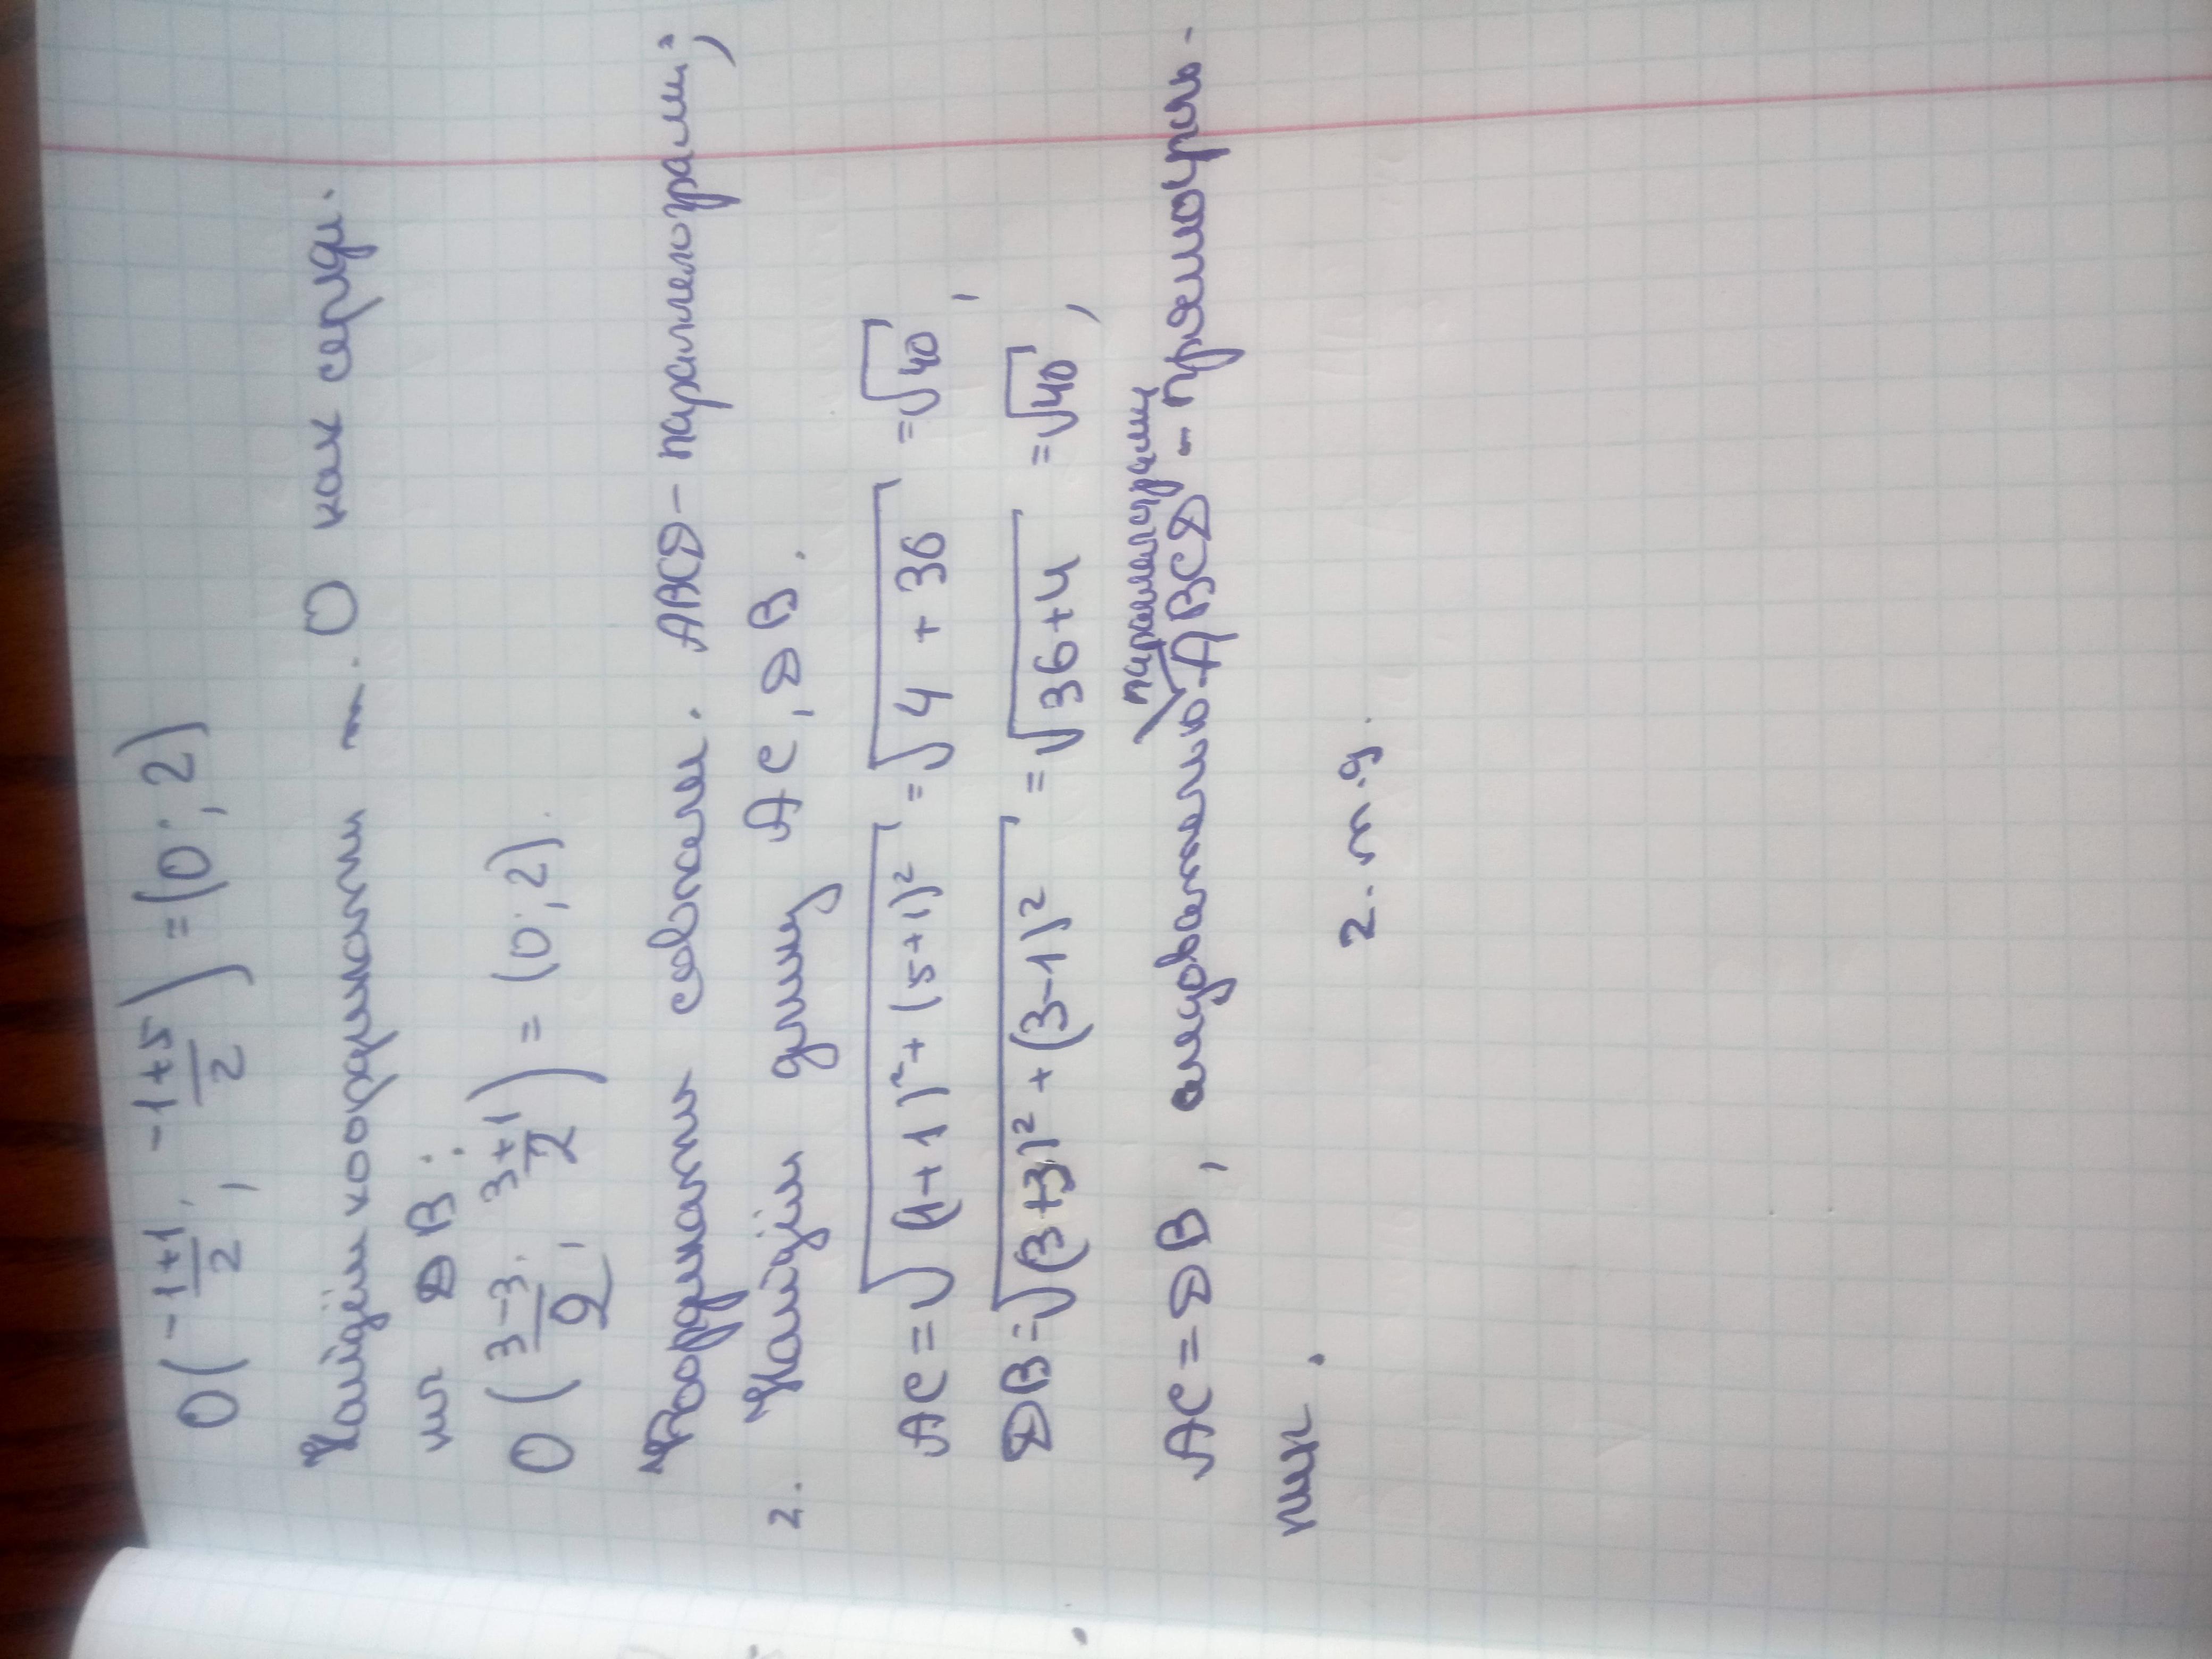 O(-1+1/2; -1+5/2) = (0; 2)
Найдём координаты т. О как середи.
ны DB:
O(3-3/2; 3+1/2) = (0; 2).
Координаты совпали. ABCD - параллелограмм;
2. Найдём длину AC, DB.
AC = √(1+1)²+(5+1)² = √4+36 = √40,
DB = √(3+3)²+(3-1)² = √36+4 = √40,
параллелограмм
AC = DB, следовательно ABCD - прямоуголь-
ник.
ч.т.д.